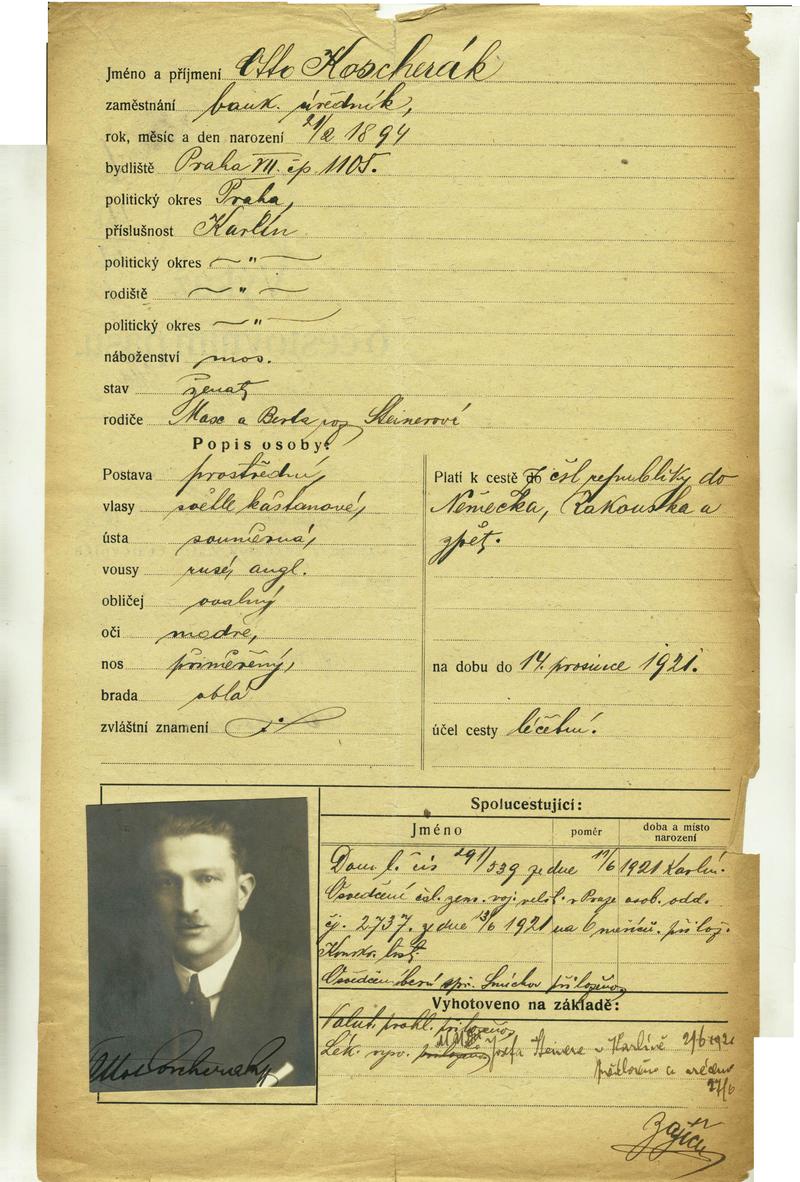 Jméno a příjmení Otto Koscherák
zaměstnání bank. úředník,
rok, měsíc a den narození 21/2 1894
bydliště Praha VII. čp. 1105.
politický okres Praha,
příslušnost Karlín
politický okres — " —
rodiště — " —
politický okres — " —
náboženství mos.
stav ženatý
rodiče Max a Berta roz. Steinerová
Popis osoby:
Postava prostřední,
vlasy světle kaštanové,
ústa souměrná,
vousy rusé, angl.
obličej oválný
oči modré,
nos přiměřený,
brada oblá
zvláštní znamení
Platí k cestě do z čsl republiky do
Německa, Rakouska a
zpět.
na dobu do 14. prosince 1921.
účel cesty léčební.
Spolucestující:
Jméno poměr doba a místo narození
Dom. l. čís 291/539 ze dne 11/6 1921 Karlín.
Osvědčení čsl. zem. voj. velit. v Praze osob. odd.
čj. 2737. ze dne 13/6 1921 na 6 měsíců. přilož.
Konskr. list.
Osvědčení berní spr. Smíchov přiloženo
Vyhotoveno na základě:
Valut. prohl. přiloženo
Lék. vysv. přiloženo MUDr Josefa Steinera v Karlíně 2/6 1921
předloženo a vráceno
27/6
Otto Koscherák
Zajíc